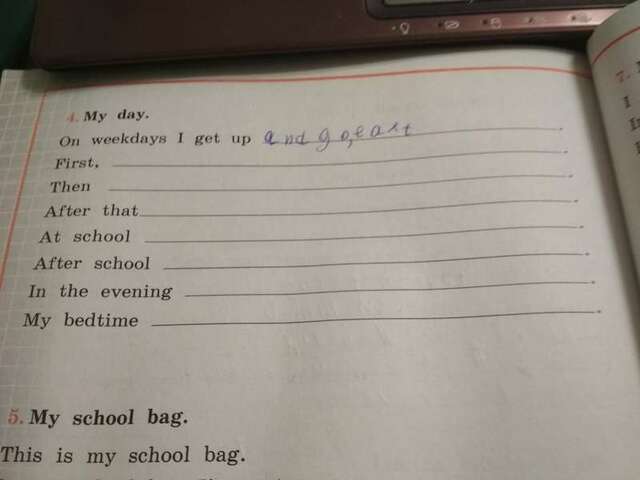 4. My day.
On weekdays I get up and go,
First,
Then
After that
At school
After school
In the evening
My bedtime
5. My school bag.
This is my school bag.
7.
I